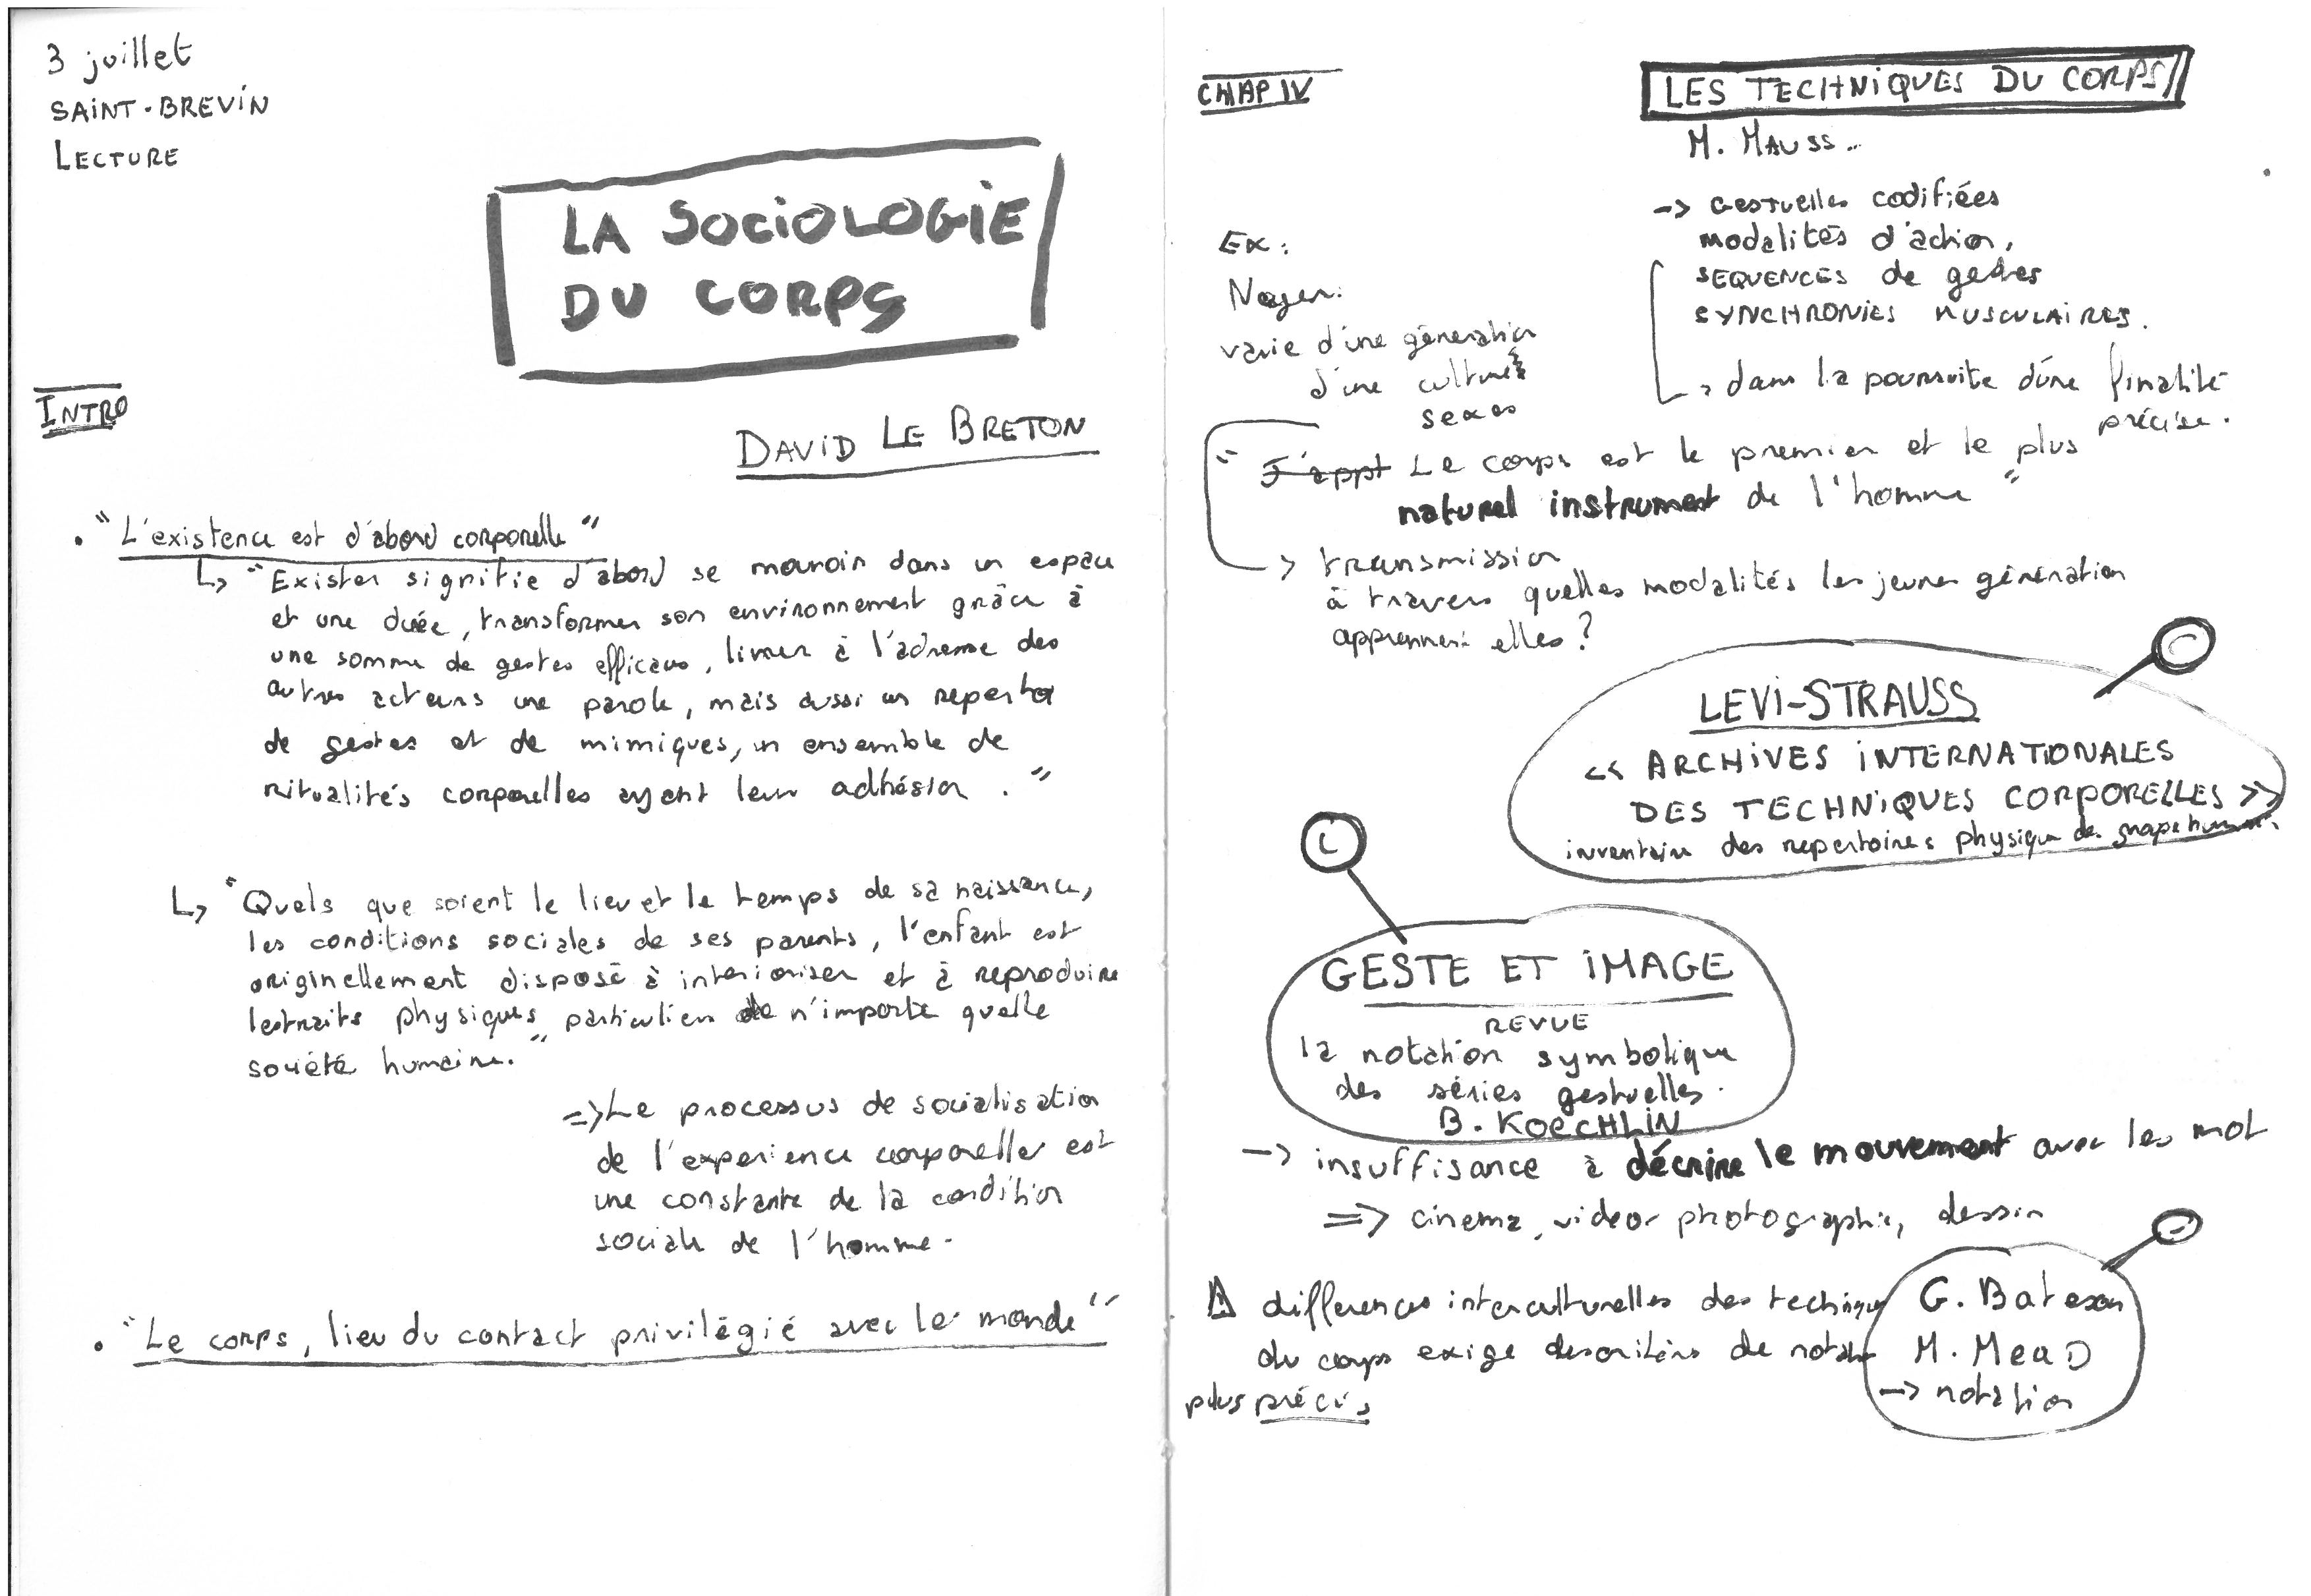 3 juillet
SAINT-BREVIN
LECTURE
LA SOCIOLOGIE
DU CORPS
INTRO
DAVID LE BRETON
• "L'existence est d'abord corporelle"
↳ "Exister signifie d'abord se mouvoir dans un espace
et une durée, transformer son environnement grâce à
une somme de gestes efficaces, livrer à l'adresse des
autres acteurs une parole, mais aussi un repertoi
de gestes et de mimiques, un ensemble de
ritualités corporelles ayant leur adhésion."
↳ "Quels que soient le lieu et le temps de sa naissance,
les conditions sociales de ses parents, l'enfant est
originellement disposé à interioriser et à reproduire
les traits physiques particuliers de n'importe quelle
société humaine."
=> Le processus de socialisation
de l'experience corporelle est
une constante de la condition
sociale de l'homme.
• "Le corps, lieu du contact privilégié avec le monde"
CHAP IV
LES TECHNIQUES DU CORPS
M. MAUSS..
-> Gestuelles codifiées
modalités d'action,
SEQUENCES de gestes
SYNCHRONIES MUSCULAIRES.
-> dans la poursuite d'une finalité
précise.
Ex:
Nager:
varie d'une génération
d'une culture
sexes
" J'appt Le corps est le premier et le plus
naturel instrument de l'homme "
-> transmission
à travers quelles modalités les jeunes génération
apprennent elles ?
LEVI-STRAUSS
<< ARCHIVES INTERNATIONALES
DES TECHNIQUES CORPORELLES >>
inventaire des repertoires physique de groupe humain
L
GESTE ET IMAGE
REVUE
la notation symbolique
des séries gestuelles.
B. KOECHLIN
-> insuffisance à décrire le mouvement avec les mot
=> cinema, video photographie, dessin
differences interculturelles des technique
du corps exige des critères de notation
plus précis
G. Bateson
M. Mead
-> notation